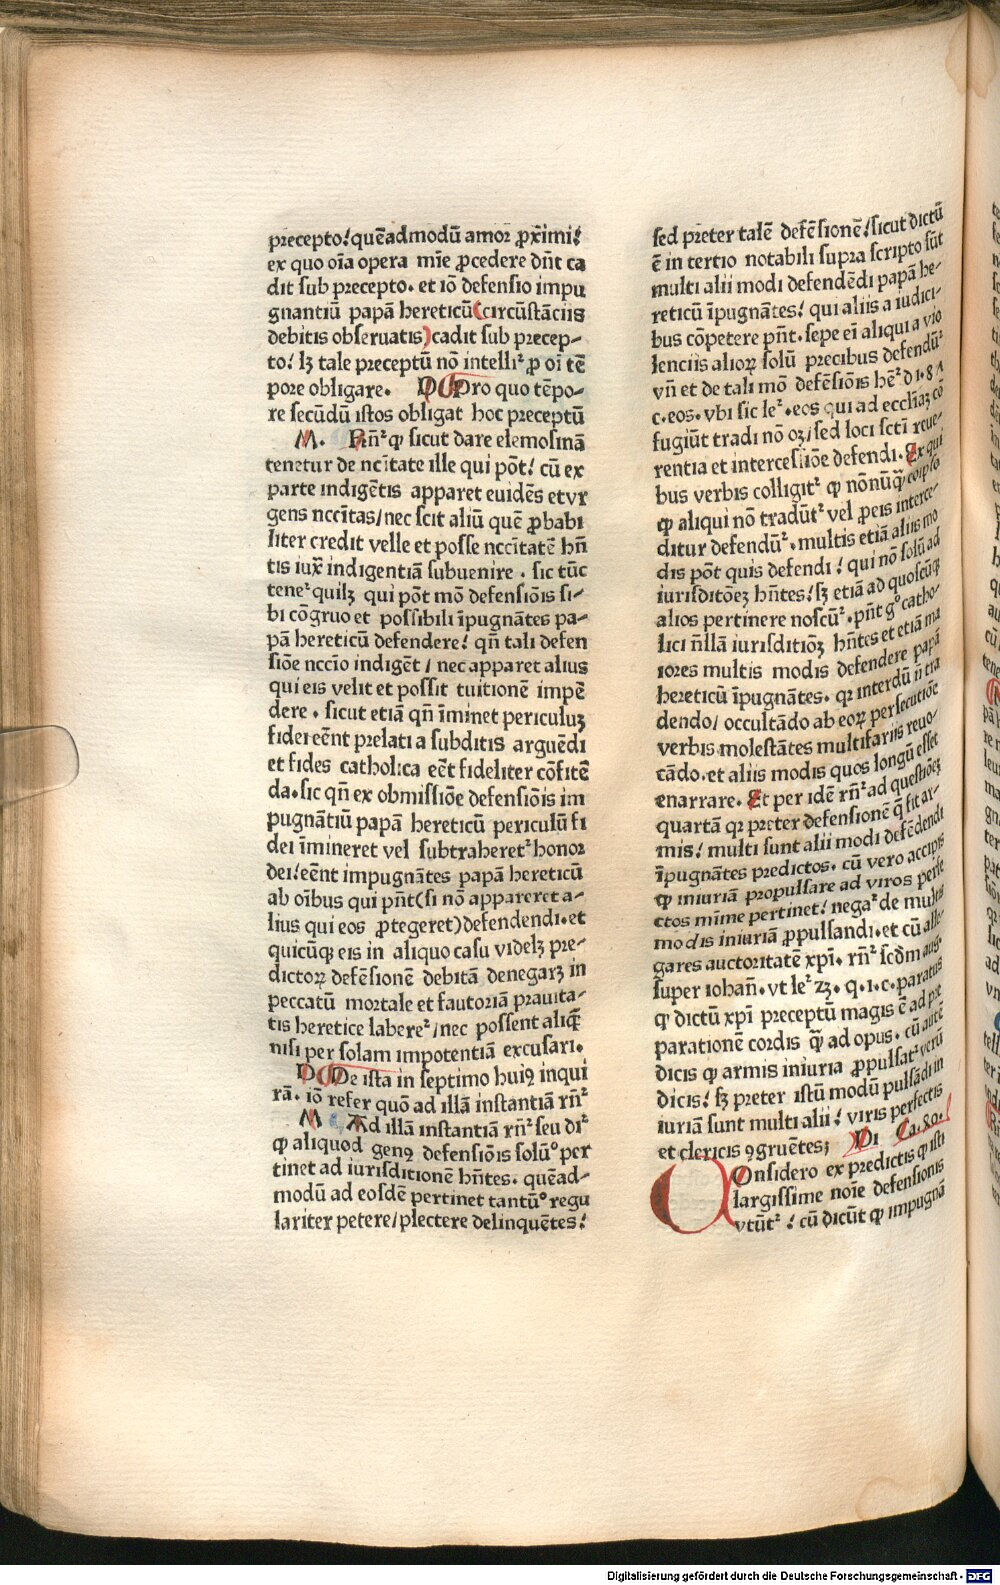 precepto! quēadmodū amor ꝓxīmi!
ex quo oīa opera mīe ꝓcedere dn̄t ca
dit sub precepto. et iō defensio impu
gnantiū papā hereticū (circūstāciis
debitis obseruatis) cadit sub precep-
to! lꝫ tale preceptū nō intelliꝰ ꝓ oī tē
pore obligare. D Pro quo tēpo-
re secūdū istos obligat hoc preceptū
M. Rn̄ꝰ ꝙ sicut dare elemosinā
tenetur de ncītate ille qui pōt! cū ex
parte indigētis apparet euidēs et vr
gens nccītas/nec scit aliū quē ꝓbabi
liter credit velle et posse nccītatē hn̄
tis iux̄ indigentiā subuenire. sic tūc
teneꝰ quilꝫ qui pōt mō defensiōis si-
bi cōgruo et possibili īpugnātes pa-
pā hereticū defendere! qn̄ tali defen
siōe nccīo indigēt/ nec apparet alius
qui eis velit et possit tuitionē impē
dere. sicut etiā qn̄ īminet periculuꝫ
fidei eēnt prelati a subditis arguēdi
et fides catholica eēt fideliter cōfitē
da. sic qn̄ ex obmissiōe defensiōis im
pugnātiū papā hereticū periculū fi
dei īmineret vel subtraheretꝰ honor
dei! eēnt impugnātes papā hereticū
ab oībus qui pn̄t (si nō appareret a-
lius qui eos ꝓtegeret) defendendi. et
quicūqꝫ eis in aliquo casu videlꝫ pre-
dictoꝝ defēsionē debitā denegarꝫ in
peccatū mortale et fautoriā prauita-
tis heretice labereꝰ/nec possent aliq̄
nisi per solam impotentiā excusari.
D De ista in septimo huiꝰ inqui
rā. iō refer quō ad illā instantiā rn̄ꝰ
M Ad illā instantiā rn̄ꝰ seu diꝰ
ꝙ aliquod genꝰ defensiōis solūº per
tinet ad iurisditionē hn̄tes. quēad-
modū ad eosdē pertinet tantūº regu
lariter petere/plectere delinquētes!
sed preter talē defēsionē! sicut dictū
ē in tertio notabili supra scripto sūt
multi alii modi defendēdi papā he-
reticū īpugnātes! qui aliis a iudici-
bus cōpetere pn̄t. sepe eī aliqui a vio
lenciis alioꝝ solū precibus defendūꝰ
vn̄ et de tali mō defēsiōis hēꝰ di. 87
c. eos. vbi sic leꝰ. eos qui ad eccliāꝫ cō
fugiūt tradi nō oꝫ/sed loci sctī reue-
rentia et intercessiōe defendi. Ex qui
bus verbis colligitꝰ ꝙ nōnūq̄ co ipso
ꝙ aliqui nō tradūtꝰ vel ꝓ eis interce-
ditur defendūꝰ. multis etiā aliis mo
dis pōt quis defendi! qui nō solū ad
iurisditōeꝫ hn̄tes! sꝫ etiā ad quoscūqꝫ
alios pertinere noscūꝰ. pn̄t gº catho-
lici n̄llā iurisditiōꝫ hn̄tes et etiā ma
iores multis modis defendere papā
hereticū īpugnātes. qꝛ interdū n̄ tra
dendo/ occultādo ab eoꝝ persecutiōe
verbis molestātes multifariis reuo-
cādo. et aliis modis quos longū esset
enarrare. Et per idē rn̄ꝰ ad questiōeꝫ
quartā qꝛ preter defensionē q̄ fit ar-
mis! multi sunt alii modi defēdendi
īpugnātes predictos. cū vero accipis
ꝙ iniuriā propulsare ad viros perfe
ctos mīme pertinet! negaꝰ de multis
modis iniuriā ꝓpulsandi. et cū alle-
gares auctoritatē xp̄i. rn̄ꝰ scd̄m aug.
super iohan̄. vt leꝰ 23. q. 1. c. paratus
ꝙ dictū xp̄i preceptū magis ē ad pre
parationē cordis q̄ ad opus. cū autē
dicis ꝙ armis iniuria ꝓpulsatꝰ verū
dicis! sꝫ preter istū modū pulsādi in
iuriā sunt multi alii! viris perfectis
et clericis ꝯgruētes; Di Ca. 80.
COnsidero ex predictis ꝙ isti
largissime noīe defensionis
vtūtꝰ! cū dicūt ꝙ impugnā
Digitalisierung gefördert durch die Deutsche Forschungsgemeinschaft - DFG